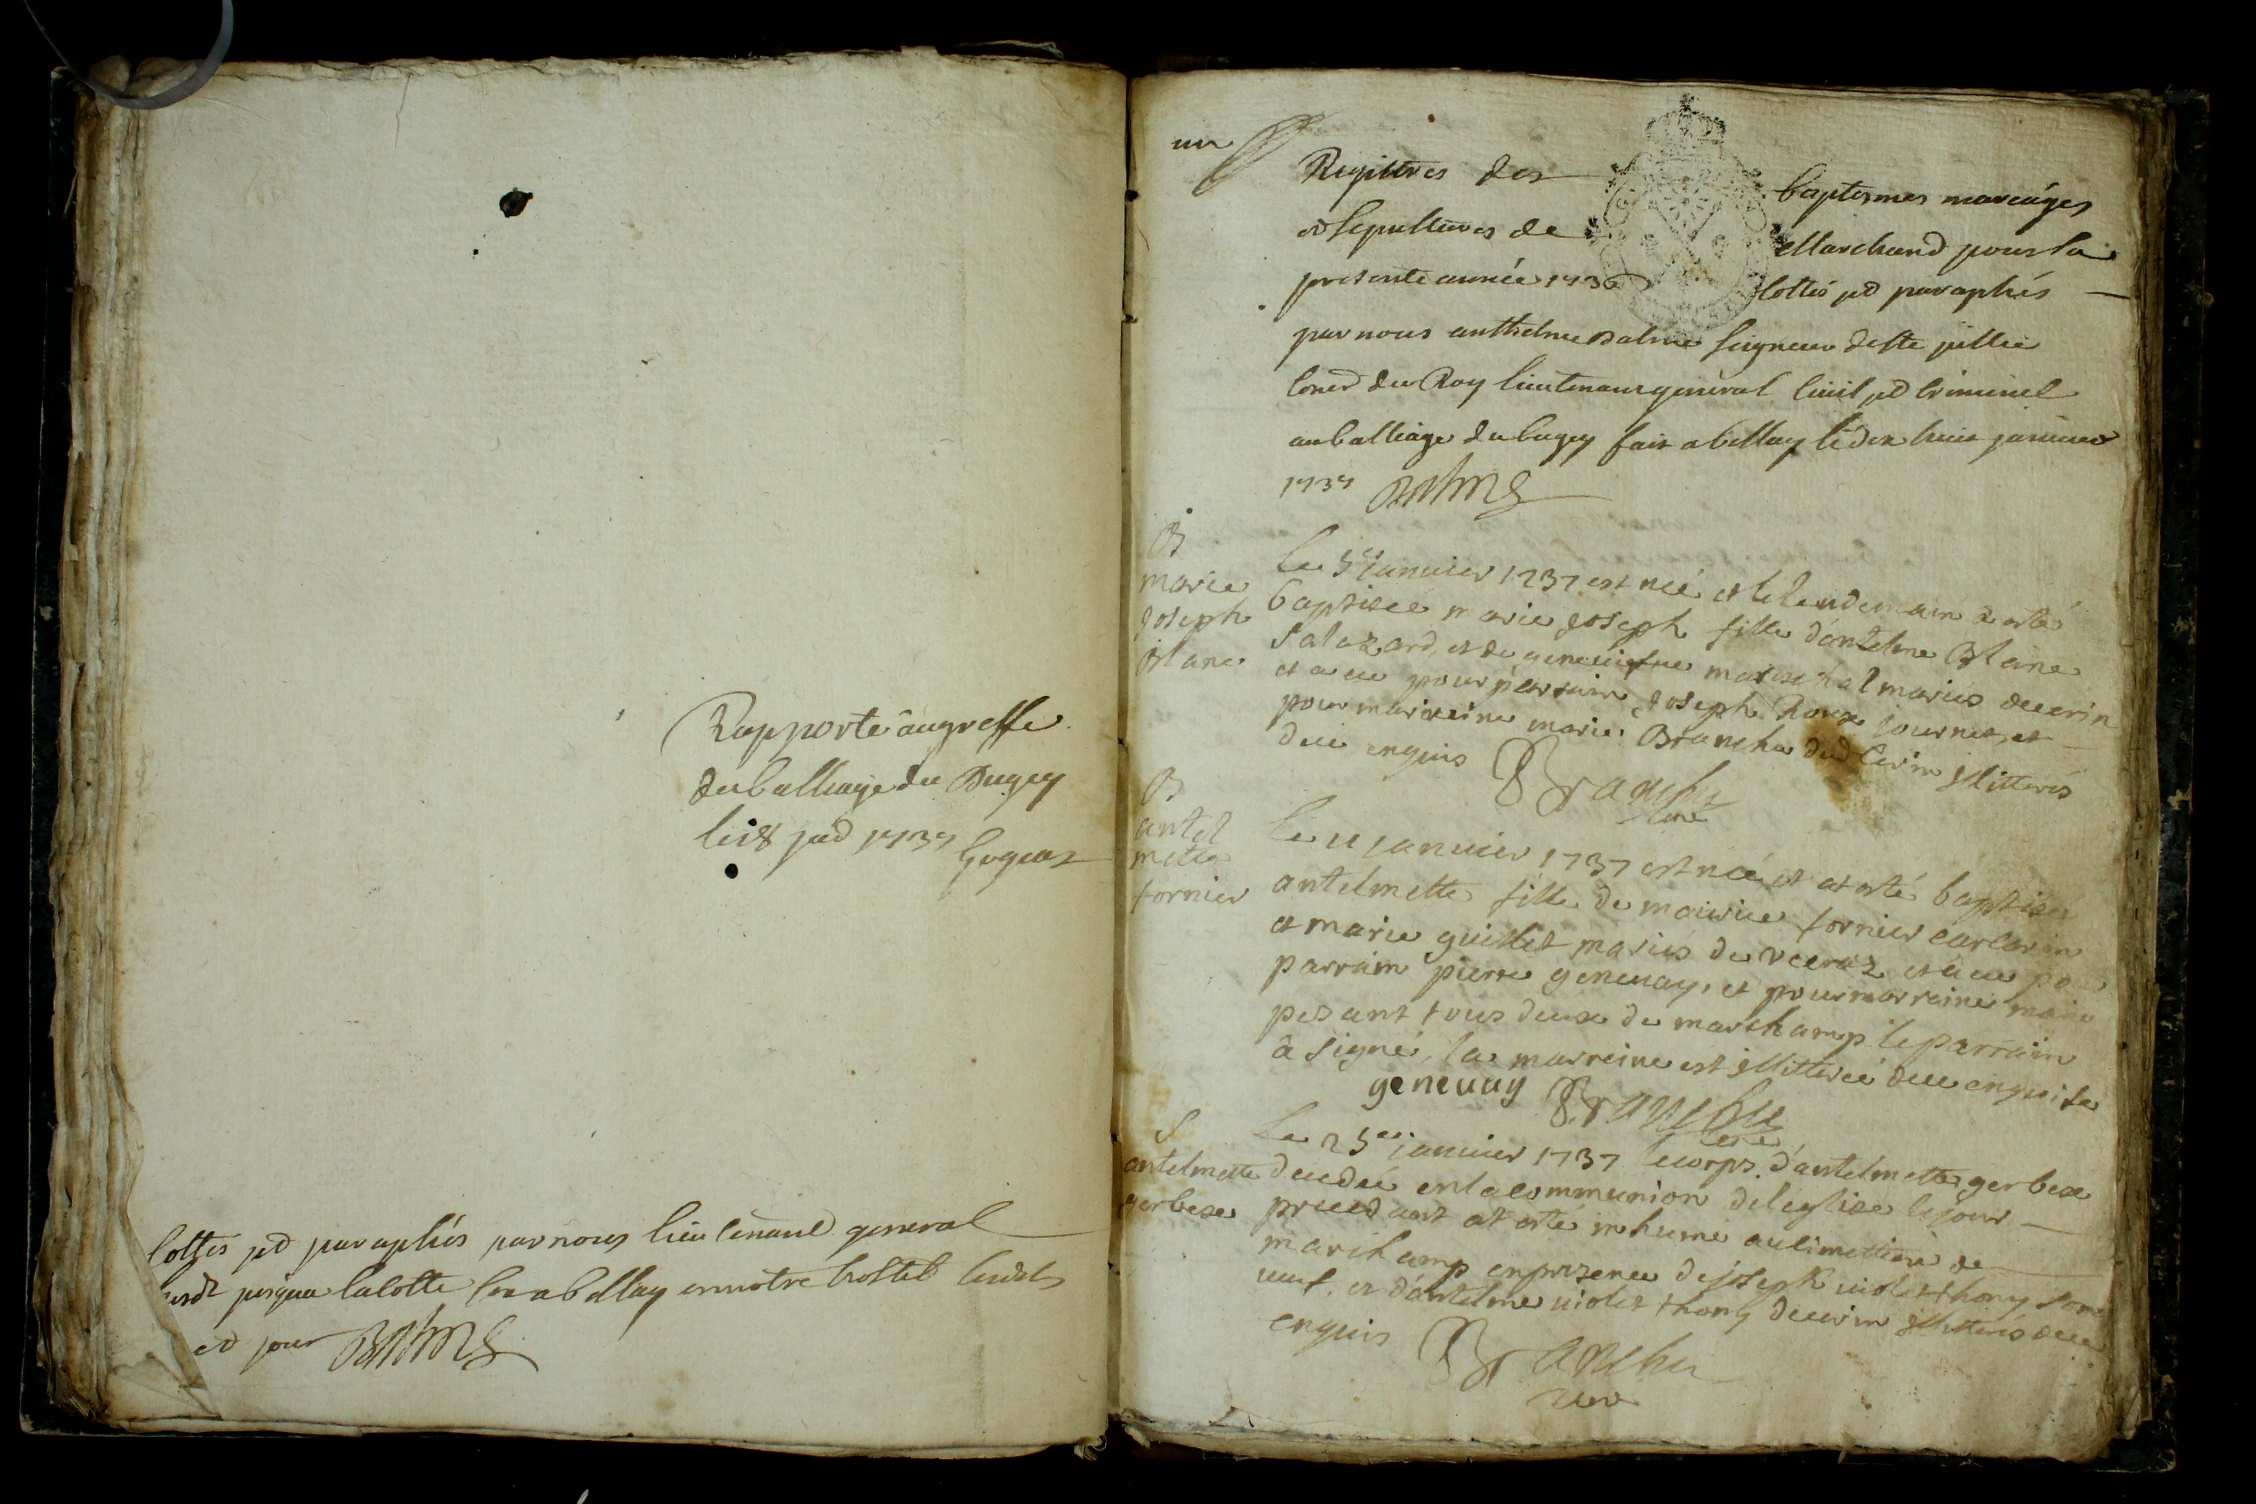 Rapporté au greffe
du balliage du Bugey
le 18 jad 1737
Cottés et paraphés par nous lieutenant general
jusqua la cotte a bellay en notre hostel
et jour Balme
un
Registres des baptesmes mariages
et Sepultures de Marchand pour la
presente année 1736 Cottés et paraphés
par nous anthelme Balme Seigneur de Ste jullie
Coner du Roy lieutenant general Civil et Criminel
au balliage du bugey fait a bellay le dix huit janvier
1737 Balme
B
marie
Joseph
Blanc
Le 5e januier 1737 est née et le lendemain a esté
baptisée marie Joseph fille d'antelme Blanc
Salazard, et de geneuiefue mareschal mariés de cerin
et a eu pour parrain Joseph Roux journet, et
pour marreine marie Branche dud Cerin Illitterés
de ce enquis Branche
Curé
B
antel
mette
fornier
Le 11 januier 1737 est née et at esté baptisée
antelmette fille de maurice fornier carlarin
et marie guillet mariés de veraz et a eu pour
parrain pierre geneuay, et pour marreine marie
pesant tous deux de marchamp le parrain
a signé, la marreine est Illitterée de ce enquise
geneuay Branche
Curé
S
antelmette
gerbex
Le 25e januier 1737 le corps d'antelmette gerbex
decedée en la communion de l'eglise le jour
precedant at esté inhumé au cimettiere de
marchamp en presence de joseph uiolet thony son
ueuf, et d'antelme uiolet thony de cerin Illitterés de ce
enquis Branche
Curé